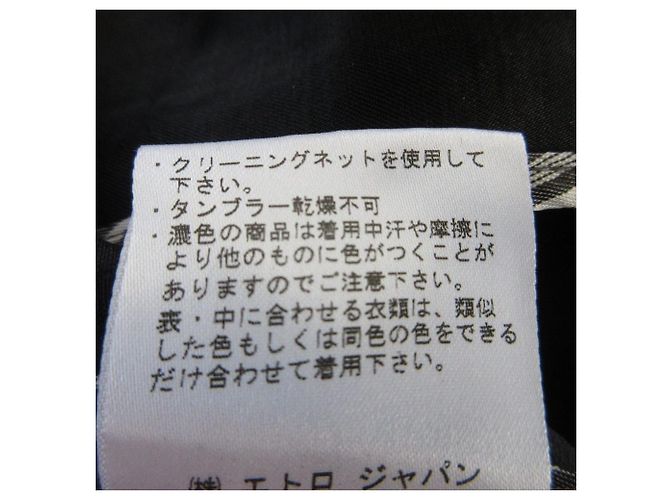 ・クリーニングネットを使用して
下さい。
・タンブラー乾燥不可
・濃色の商品は着用中汗や摩擦に
より他のものに色がつくことが
ありますのでご注意下さい。
表・中に合わせる衣類は、類似
した色もしくは同色の色をできる
だけ合わせて着用下さい。
㈱ エトロ ジャパン